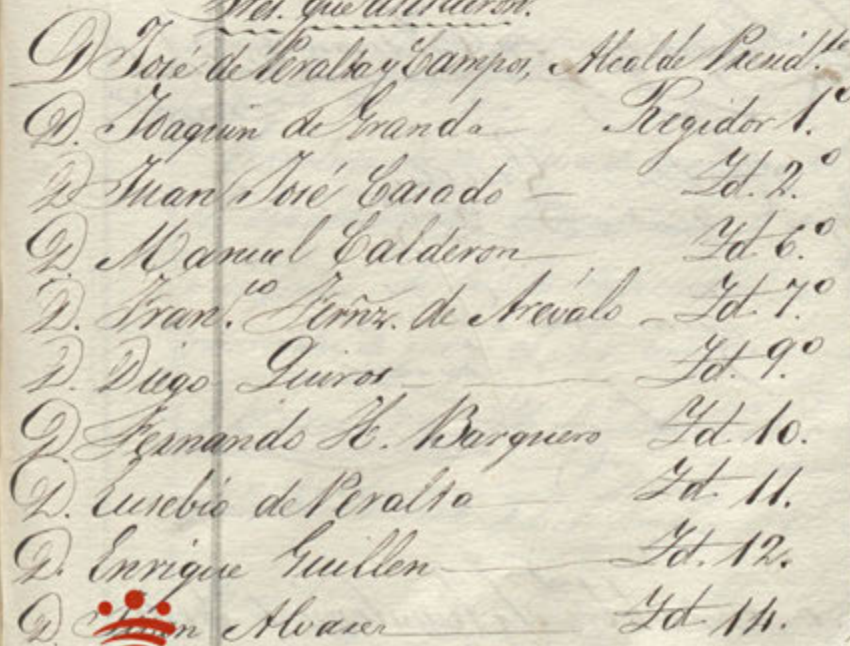 Sres. que asistieron.
D. José de Peralta y Campos, Alcalde Presid.te
D. Joaquin de Granda Regidor 1.º
D. Juan José Casado — Id. 2.º
D. Manuel Calderon Id. 6.º
D. Fran.co Fernz. de Arévalo — Id. 7.º
D. Diego Quiros — Id. 9.º
D. Fernando H. Barquero Id. 10.
D. Eusebio de Peralta Id. 11.
D. Enrique Guillen — Id. 12.
D. Alvarez Id. 14.